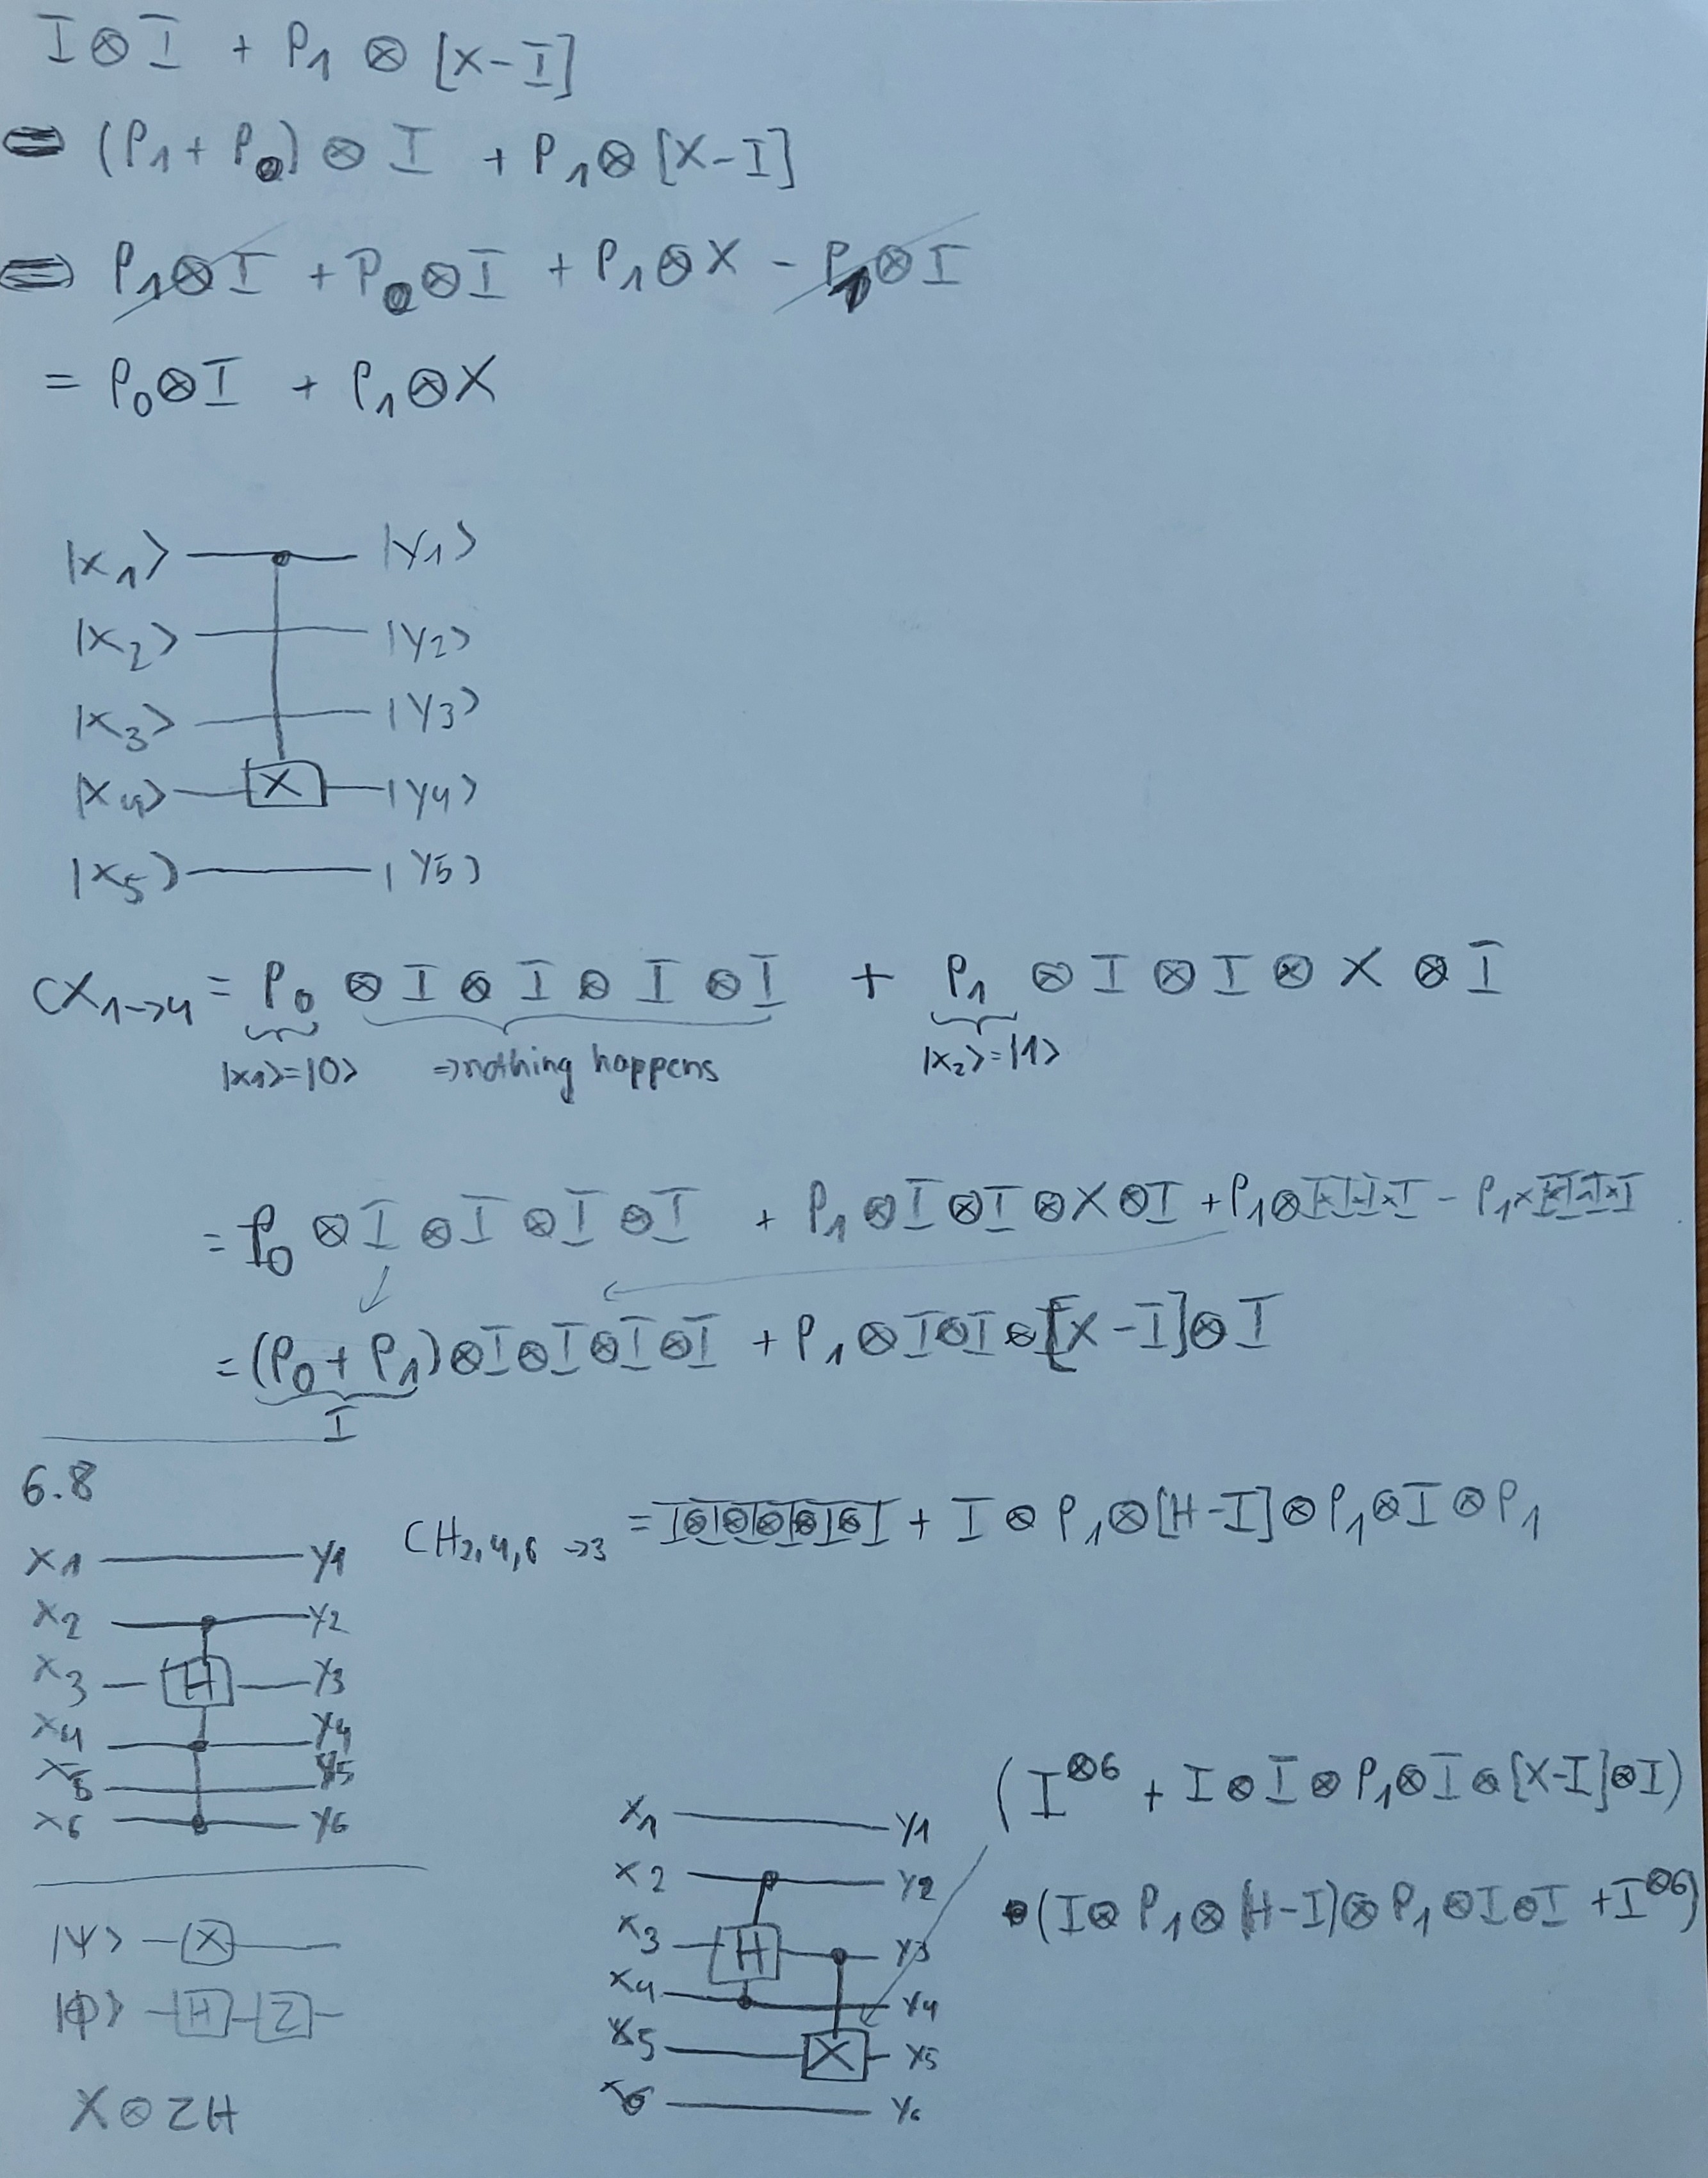 I ⊗ I + P₁ ⊗ [X-I]
= (P₁ + P₀) ⊗ I + P₁ ⊗ [X-I]
= P₁⊗I + P₀⊗I + P₁⊗X - P₁⊗I
= P₀⊗I + P₁⊗X
|x₁> |y₁>
|x₂> |y₂>
|x₃> |y₃>
|x₄> X |y₄>
|x₅> |y₅>
CX₁→₄ = P₀ ⊗ I ⊗ I ⊗ I ⊗ I + P₁ ⊗ I ⊗ I ⊗ X ⊗ I
|x₁>=|0> ⇒nothing happens |x₂>=|1>
= P₀ ⊗ I ⊗ I ⊗ I ⊗ I + P₁ ⊗ I ⊗ I ⊗ X ⊗ I + P₁ ⊗ I×I×I×I - P₁×I×I×I×I
= (P₀ + P₁) ⊗ I ⊗ I ⊗ I ⊗ I + P₁ ⊗ I ⊗ I ⊗ [X-I] ⊗ I
I
6.8
CH₂,₄,₆→₃ = I⊗I⊗I⊗I⊗I⊗I + I ⊗ P₁ ⊗ [H-I] ⊗ P₁ ⊗ I ⊗ P₁
x₁ y₁
x₂ y₂
x₃ H y₃
x₄ y₄
x₅ y₅
x₆ y₆
|ψ> X
|ϕ> H Z
X ⊗ ZH
x₁ y₁
x₂ y₂
x₃ H y₃
x₄ y₄
x₅ X y₅
x₆ y₆
(I^⊗6 + I ⊗ I ⊗ P₁ ⊗ I ⊗ [X-I] ⊗ I)
•(I ⊗ P₁ ⊗ (H-I) ⊗ P₁ ⊗ I ⊗ I + I^⊗6)